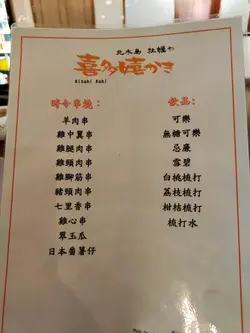 北木島 牡蠣や
喜多嬉かき
Kitaki Kaki
時令串燒：
羊肉串
雞中翼串
雞腿肉串
雞頸肉串
雞腳筋串
豬頸肉串
七里香串
雞心串
翠玉瓜
日本番薯仔
飲品：
可樂
無糖可樂
忌廉
雪碧
白桃梳打
荔枝梳打
柑桔梳打
梳打水